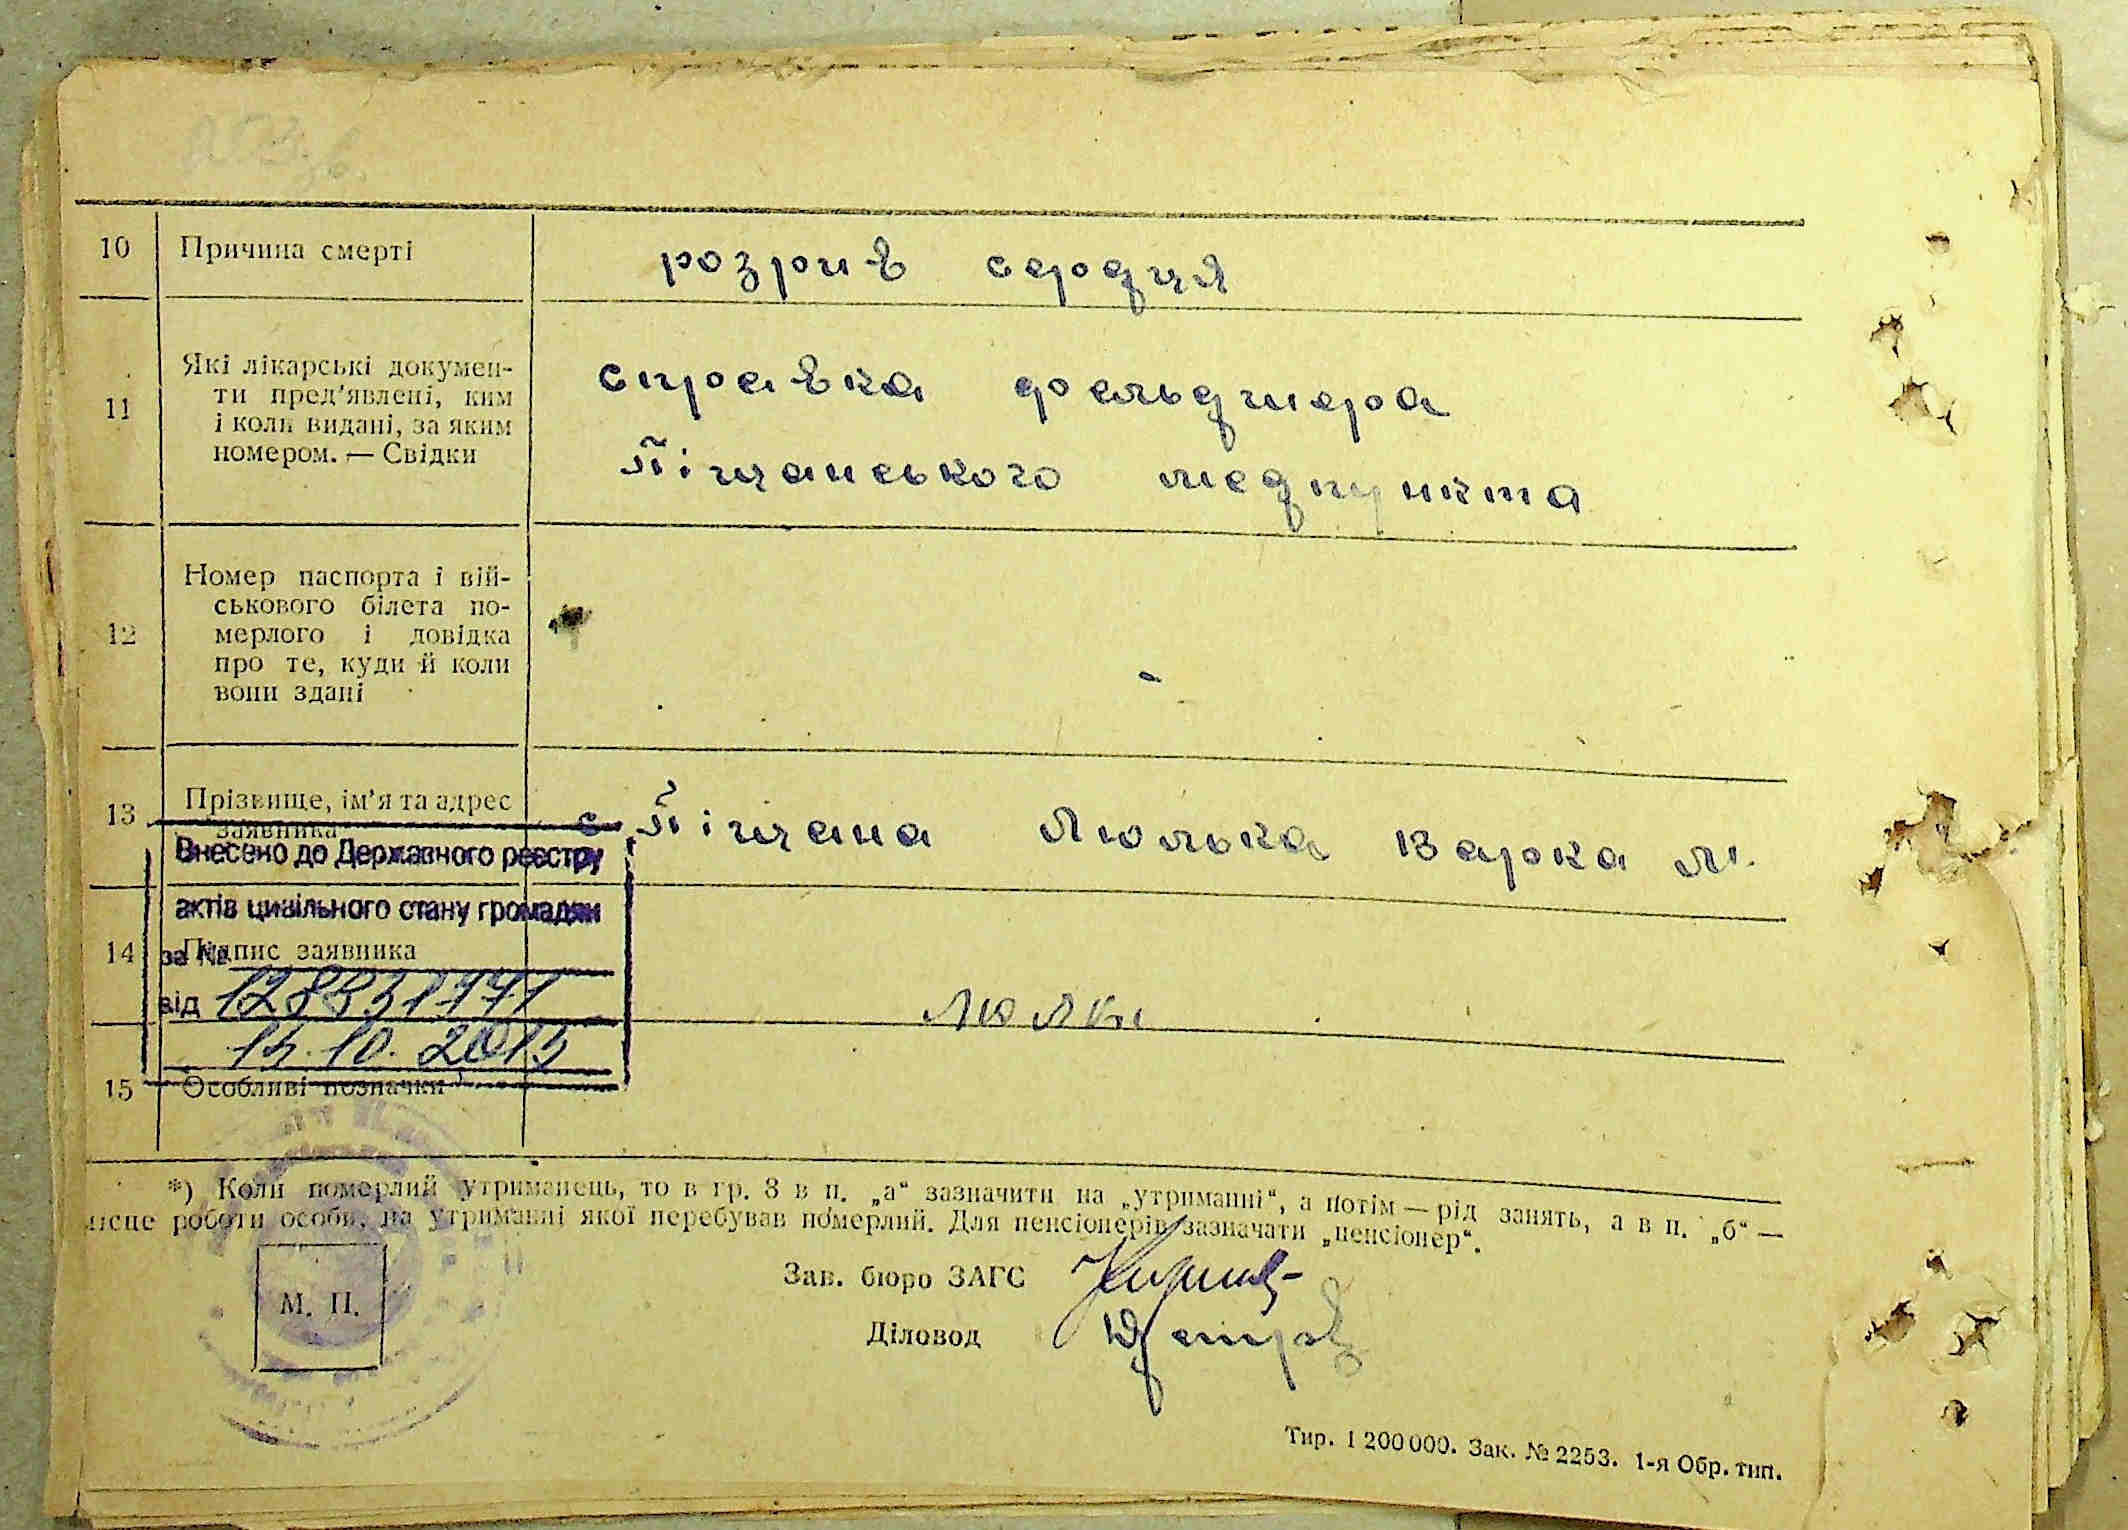 10 Причина смерті розрив серця
11 Які лікарські докумен-
ти пред'явлені, ким
і коли видані, за яким
номером. — Свідки
справка фельдшера
Піщанського медпункта
12 Номер паспорта і вій-
ськового білета по-
мерлого і довідка
про те, куди й коли
вони здані
13 Прізвище, ім'я та адрес
заявника
с. Піщана Люлька Варка М.
Внесено до Державного реєстру
актів цивільного стану громадян
за №
14 Підпис заявника
від 128831771
15.10.2015
15 Особливі позначки
*) Коли померлий утриманець, то в гр. 8 в п. „а“ зазначити на „утриманні“, а потім — рід занять, а в п. „б“ —
місце роботи особи, на утриманні якої перебував померлий. Для пенсіонерів зазначати „пенсіонер“.
Зав. бюро ЗАГС
М. П.
Діловод
Тир. 1 200 000. Зак. № 2253. 1-я Обр. тип.